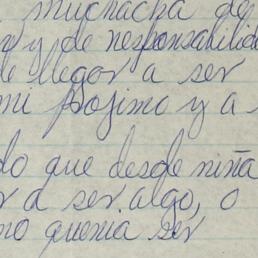 muchacha de
y de responsabilid
llegar a ser
mi projimo y a
do que desde niña
r a ser algo, o
mo queria ser